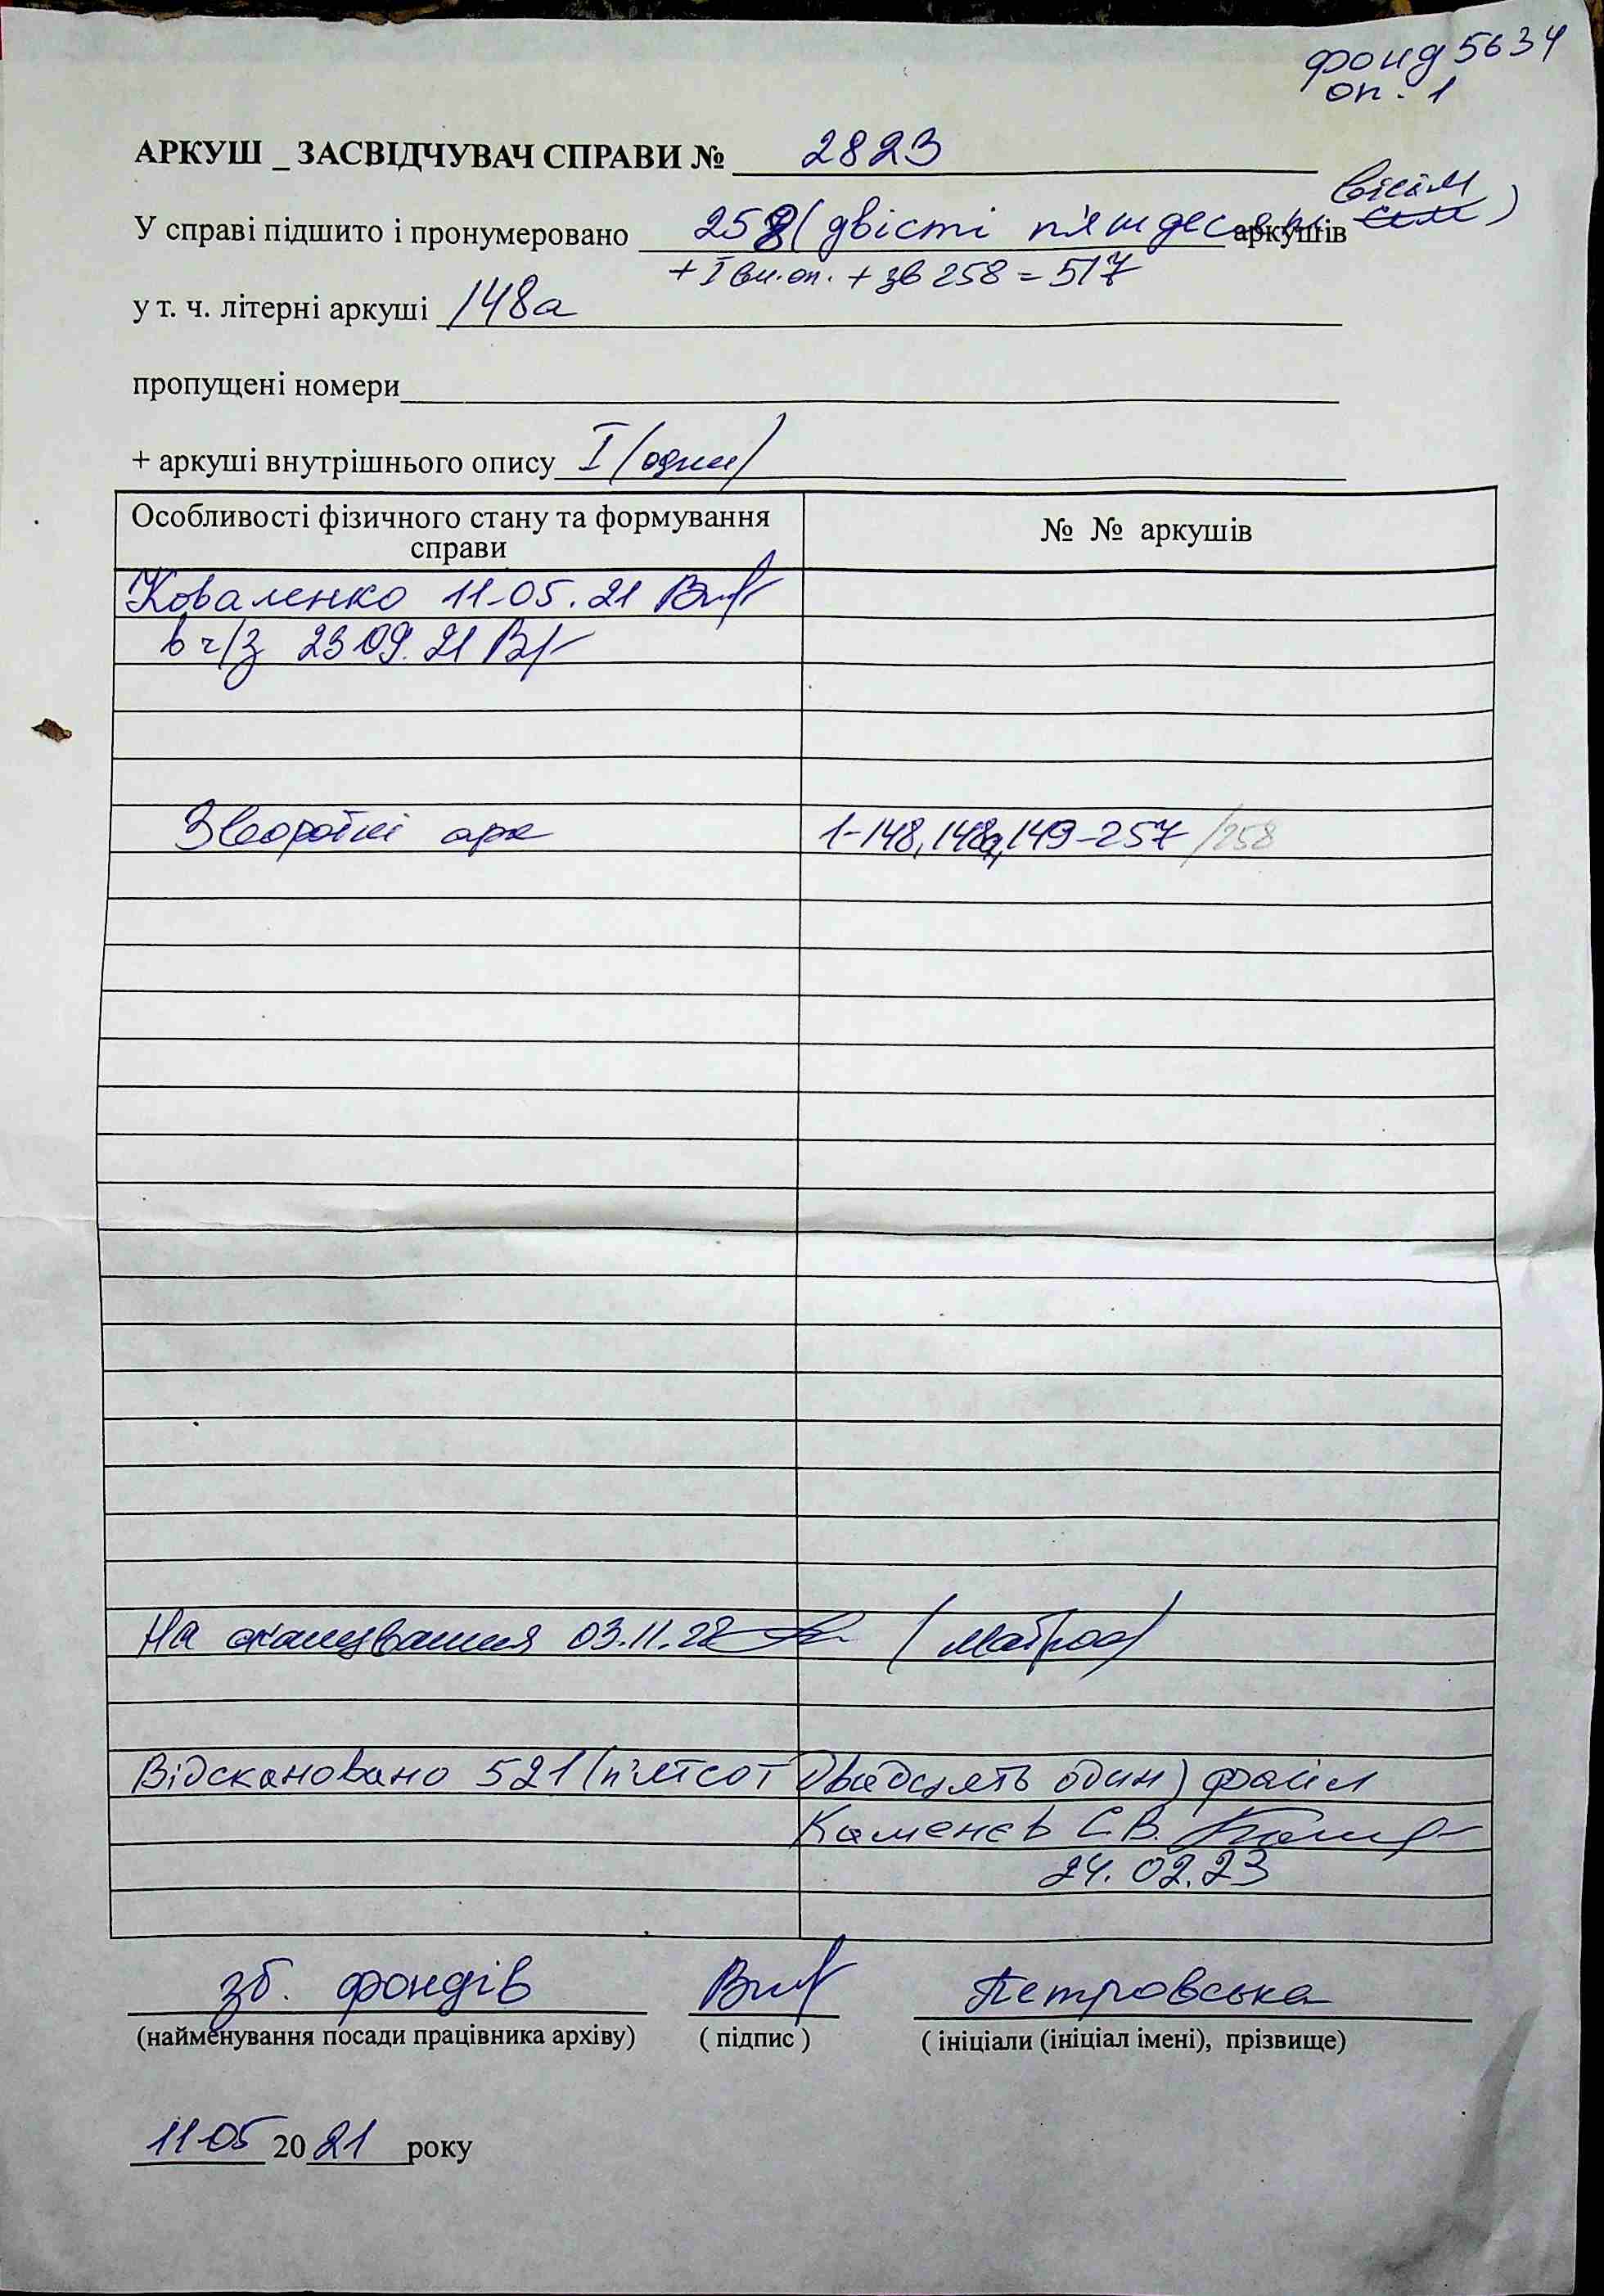 фонд 5634
оп. 1
АРКУШ _ ЗАСВІДЧУВАЧ СПРАВИ № 2823
У справі підшито і пронумеровано 258 (двісті п'ятдесят аркушів сім вісім)
+ I вн.оп. + зв 258 = 517
у т. ч. літерні аркуші 148а
пропущені номери
+ аркуші внутрішнього опису I (один)
Особливості фізичного стану та формування справи
№ № аркушів
Коваленко 11.05.21
в ч/з 23.09.21
Зворотні арк 1-148, 148а, 149-257 /258
На сканування 03.11.22
Відскановано 521 (п'ятсот двадцять один) файл
Каменєв С.В.
24.02.23
зб. фондів Петровська
(найменування посади працівника архіву) ( підпис ) ( ініціали (ініціал імені), прізвище)
11.05 2021 року